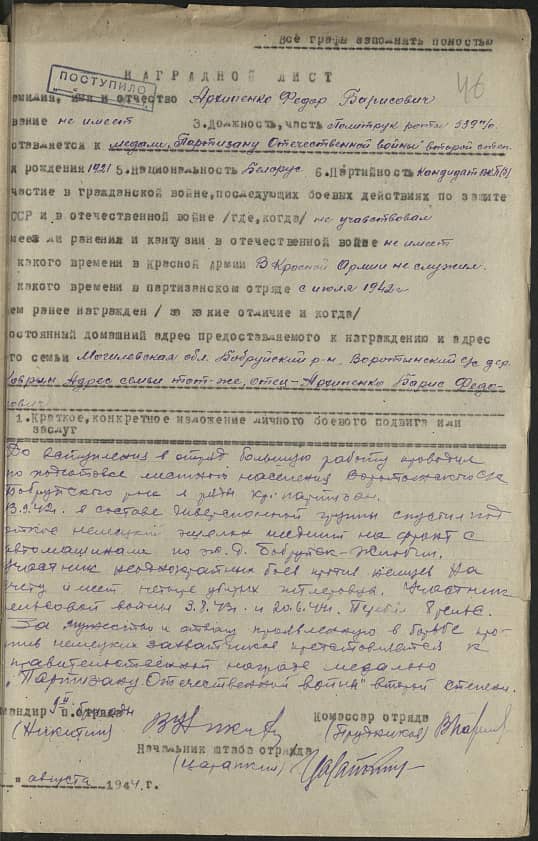 Все графы заполнять полностью
46
НАГРАДНОЙ ЛИСТ
ПОСТУПИЛО
амилия, имя и отчество Архипенко Федор Барисович
вание не имеет 3. Должность, часть Политрук роты 539 п/о.
ставляется к медали "Партизану Отечественной войны" второй степ.
д рождения 1921 5. Национальность Беларус 6. Партийность кандидат ВКП(б)
частие в гражданской войне, последующих боевых действиях по защите
ССР и в отечественной войне /где, когда/ не учавствовал
меет ли ранения и кантузии в отечественной войне не имеет
какого времени в Красной Армии В Красной Армии не служил.
какого времени в партизанском отряде с июля 1942 г
ем ранее награжден / за какие отличие и когда/
остоянный домашний адрес предоставляемого к награждению и адрес
го семьи Могилевская обл. Бобруйский р-н, Воротынский с/с дер.
Адрес семьи тот-же, отец - Архипенко Барис Федо-
рович
1. Краткое, конкретное изложение личного боевого подвига или
заслуг
До вступления в отряд большую работу проводил
по подготовке местного населения Воротынского с/с
Бобруйского р-на в ряды кр. партизан.
13.9.42г. в составе диверсионной группы спустил под
откос немецкий эшелон шедший на фронт с
автомашинами по ж.д. Бобруйск-Жлобин.
Участник неоднократных боев против немцев На
счету имеет четыре убитых гитлеровца. Участник
рельсовой войны 3.8.43г. и 20.6.44г.
За мужество и отвагу проявленную в борьбе про-
тив немецких захватчиков представляется к
правительственной награде медалью
"Партизану Отечественной войны" второй степени.
омандир п.отряда Комиссар отряда
(Никитин) (Прудников)
Начальник штаба отряда
(Царапкин)
" " августа 1944 г.